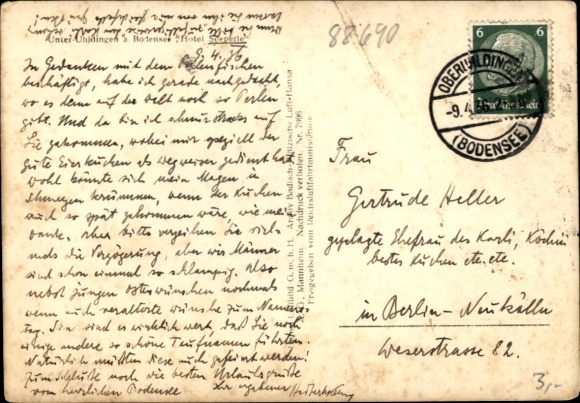 Wenn
88690
Unter-Uhldingen a. Bodensee "Hotel Seeperle"
9. 4. 36
In Gedanken mit dem Perlenfischen
beschäftigt, habe ich gerade nachgedacht,
wo es denn auf der Welt noch so Perlen
gibt. Und da bin ich schnurstracks auf
Sie gekommen, wobei mir speziell der
gute Eierkuchen als Wegweiser gedient hat.
Wohl könnte sich mein Magen in
Schmerzen krümmen, wenn der Kuchen
auch so spät gekommen wäre, wie mein
Dank. Aber bitte verzeihen Sie viel-
mals die Verzögerung, aber wir Männer
sind schon einmal so schlampig. Also
nebst jungen Osterwünschen nochmals
wenn auch veraltete Wünsche zum Namens-
tag. Sie sind es wirklich wert, daß Sie noch
einige andere so schöne Taufnamen führten.
Natürlich müßten diese auch gefeiert werden!
Zum Schluße noch die besten Urlaubsgrüße
vom herrlichen Bodensee
Ihr ergebener
Luftbild G. m. b. H. Archiv Badisch-Pfälzische Luft-Hansa
A.G., Mannheim. Nachdruck verboten. Nr. 7096
Freigegeben vom Reichsluftfahrtministerium
6 6
Deutsches Reich
OBERUHLDINGEN
-9.4.36
(BODENSEE)
Frau
Gertrude Heller
geplagte Ehefrau des Karli, Köchin
bester Kuchen etc. etc.
in Berlin-Neukölln
Weserstrasse 82.
3,-